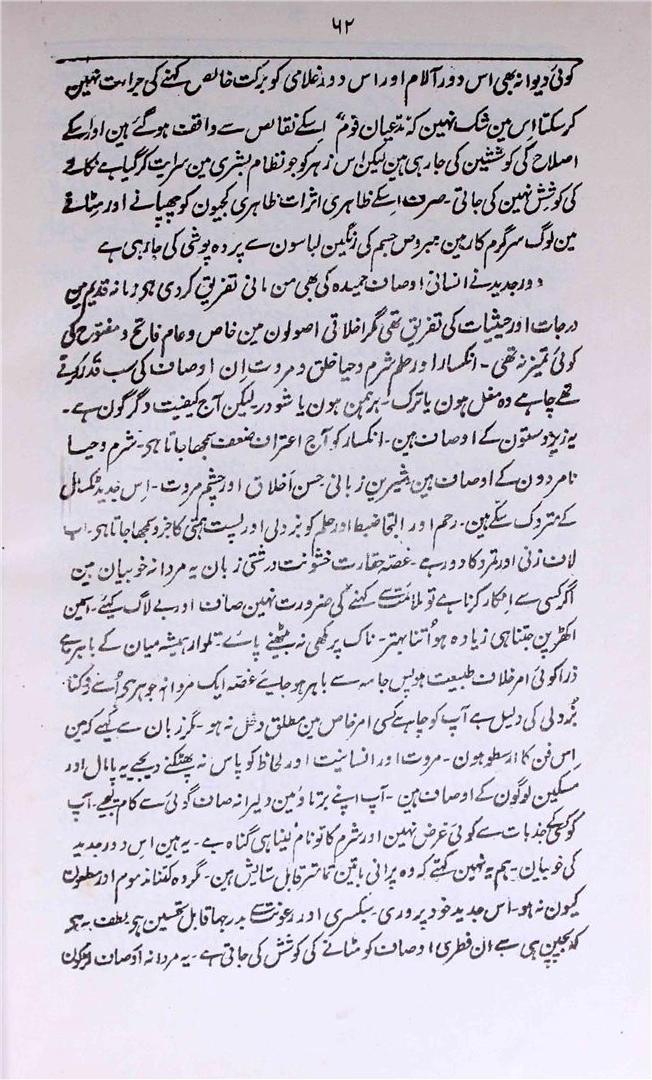 ۶۲
کوئی دیوانہ بھی اس دور آلام اور اس دور غلامی کو برکت خالص کہنے کی جراءت نہین
کر سکتا اِس مین شک نہین کہ مدعیان قوم اِسکے نقائص سے واقف ہو گئے ہین اور اسکے
اصلاح کی کوششین کی جا رہی ہین لیکن اس زہر کو جو نظام بشری مین سرایت کر گیا ہے نکالنے
کی کوشش نہین کی جاتی۔ صرف اِسکے ظاہری اثرات ظاہری کجیون کو چھپانے اور مٹانے
مین لوگ سرگرم کار مین مبروص جسم کی رنگین لباسون سے پردہ پوشی کی جا رہی ہے
دور جدید نے انسانی اوصاف حمیدہ کی بھی من مانی تفریق کر دی ہی زمانہ قدیم مین
درجات اور حیثیات کی تفریق تھی مگر اخلاقی اصولون مین خاص و عام فاتح و مفتوح کی
کوئی تمیز نہ تھی۔ انکسار اور حلم شرم و حیا خلق و مروت اِن اوصاف کی سب قدر کرتے
تھے چاہے وہ مغل ہون یا ترک۔ برہمن ہون یا شودر۔ لیکن آج کیفیت دگرگون ہے۔
یہ زیر دستون کے اوصاف ہین۔ انکسار کو آج اعتراف ضعف سمجھا جاتا ہی۔ شرم و حیا
نامردون کے اوصاف ہین شیرین زبانی حسن اخلاق اور چشم مروت۔ اِس جدید ٹکسال
کے متروک سکے ہین۔ رحم اور التجا ضبط اور حلم کو بزدلی اور پست ہمتی کا جزو سمجھا جاتا ہی۔ اب
لاف زنی اور تمرد کا دور ہے۔ غصہ حقارت خشونت درشتی زبان یہ مردانہ خوبیان مین
اگر کسی سے اِنکار کرنا ہے تو ملائمت سے کہنے کی ضرورت نہین صاف اور بے لاگ کہیے۔ اسمین
اکھڑپن جتنا ہی زیادہ ہو اُتنا بہتر۔ ناک پر مکھی نہ بیٹھنے پائے۔ تلوار ہمیشہ میان کے باہر رہے
ذرا کوئی امر خلاف طبیعت ہو بس جامہ سے باہر ہو جایئے غصہ ایک مردانہ جوہر ہی اُسے روکنا
بُزدلی کی دلیل ہے آپ کو چاہے کسی امر خاص مین مطلق دخل نہ ہو۔ مگر زبان سے کہیے کہ مین
اِس فن کا ارسطو ہون۔ مروت اور انسانیت اور لحاظ کو پاس نہ پھٹکنے دیجیے یہ پامال اور
مسکین لوگون کے اوصاف ہین۔ آپ اپنے برتاؤ مین دلیرانہ صاف گوئی سے کام لیجے۔ آپ
کو کسی کے جذبات سے کوئی غرض نہین اور شرم کا تو نام لینا ہی گناہ ہے۔ یہ ہین اِس دور جدید
کی خوبیان۔ ہم یہ نہین کہتے کہ وہ پرانی باتین تمامتر قابل ستایش ہن۔ مگر وہ کتنا مذموم اور مطعون
کیون نہ ہو۔ اس جدید خود پروری۔ سبکسری اور رعونت سے بدرجہا قابل تحسین ہی لطف یہ ہی
کہ بچپن ہی سے اِن فطری اوصاف کو مٹانے کی کوشش کی جاتی ہے۔ یہ مردانہ اوصاف لڑکون